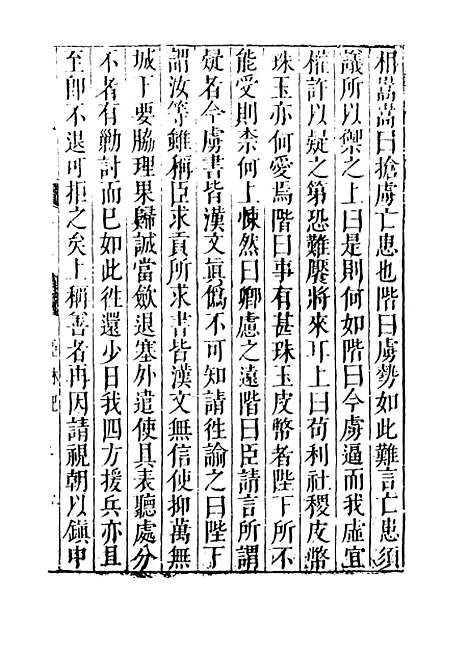 相嵩嵩曰搶虜亡患也階曰虜勢如此難言亡患須
議所以禦之上曰是則何如階曰今虜逼而我虛宜
權許以疑之第恐難厭將來耳上曰苟利社稷皮幣
珠玉亦何愛焉階曰事有甚珠玉皮幣者陛下所不
能受則柰何上悚然曰卿慮之遠階曰臣請言所謂
疑者今虜書皆漢文眞僞不可知請徃諭之曰陛下
謂汝等雖稱臣求貢所求書皆漢文無信使抑萬無
城下要脇理果歸誠當歛退塞外遣使具表聽處分
不者有勦討而已如此徃還少日我四方援兵亦且
至卽不退可拒之矣上稱善者再因請視朝以鎭中